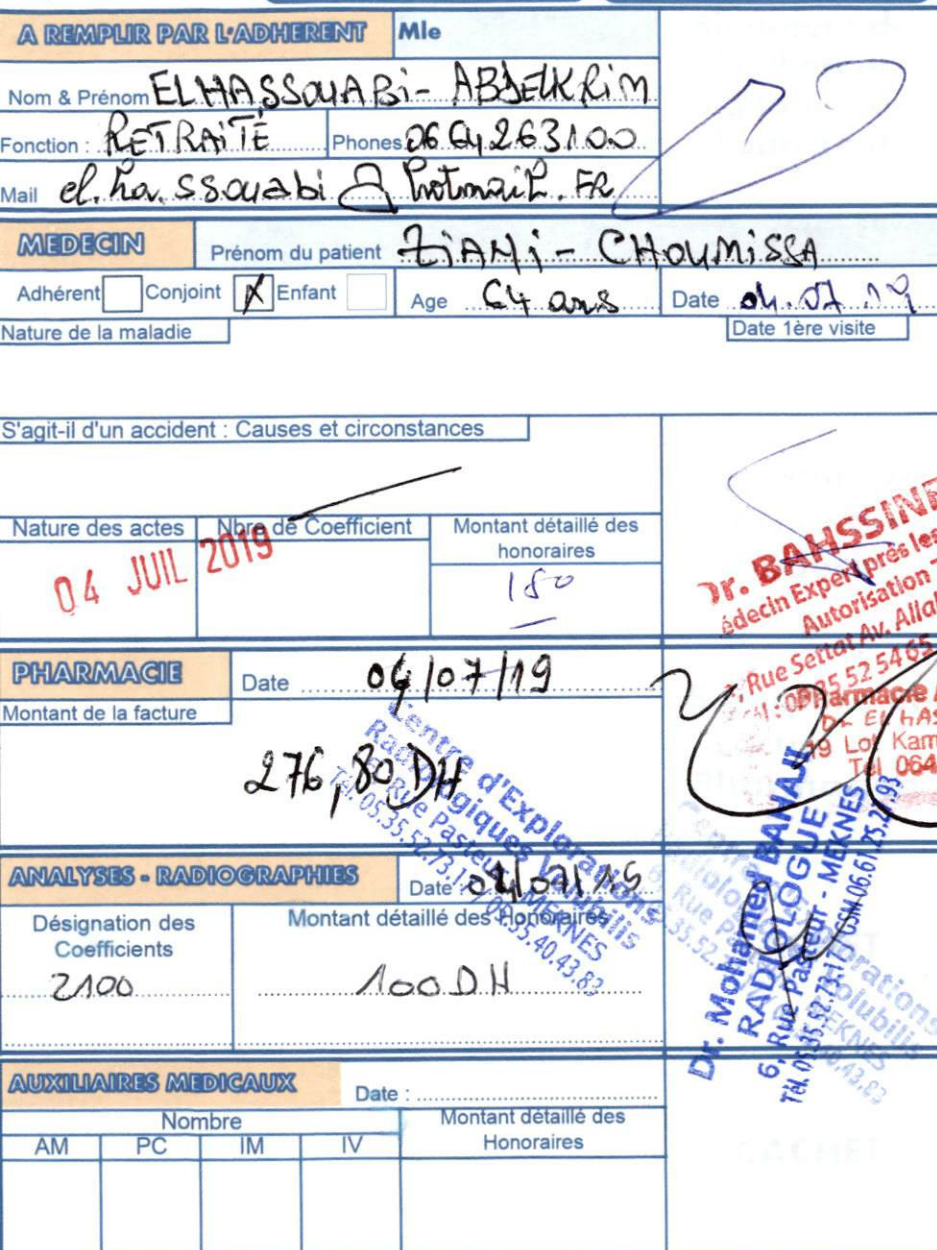 A REMPLIR PAR L'ADHERENT Mle
Nom & Prénom ELHASSOUABi - ABDELKRiM
Fonction : RETRAiTÉ Phones 0664263100
Mail el.ha.ssouabi @ hotmail.FR
MEDECIN Prénom du patient ZiANi - CHOUMiSSA
Adhérent Conjoint X Enfant Age 64 ans Date 04.07.19
Nature de la maladie Date 1ère visite
S'agit-il d'un accident : Causes et circonstances
Nature des actes Nbre de Coefficient Montant détaillé des honoraires
04 JUIL 2019
180
Dr. BAHSSINE
édecin Expert près les
Autorisation
Rue Settat Av. Allal
PHARMACIE Date 04/07/19
Montant de la facture
276,80 DH
Pharmacie
Dr EL HAS
19 Lot Kam
Tél 064
Centre d'Explorations
Radiologiques Volubilis
6, Rue Pasteur - MEKNES
Tél. 05.35.52.73.17 / 05.35.40.43.83
ANALYSES - RADIOGRAPHIES Date 04/07/19
Désignation des Coefficients Montant détaillé des Honoraires
Z100 100 DH
Dr. Mohamed BAHAJI
RADIOLOGUE
6, Rue Pasteur - MEKNES
Tél. 05.35.52.73.17
AUXILIAIRES MEDICAUX Date :
Nombre Montant détaillé des Honoraires
AM PC IM IV
CACHET